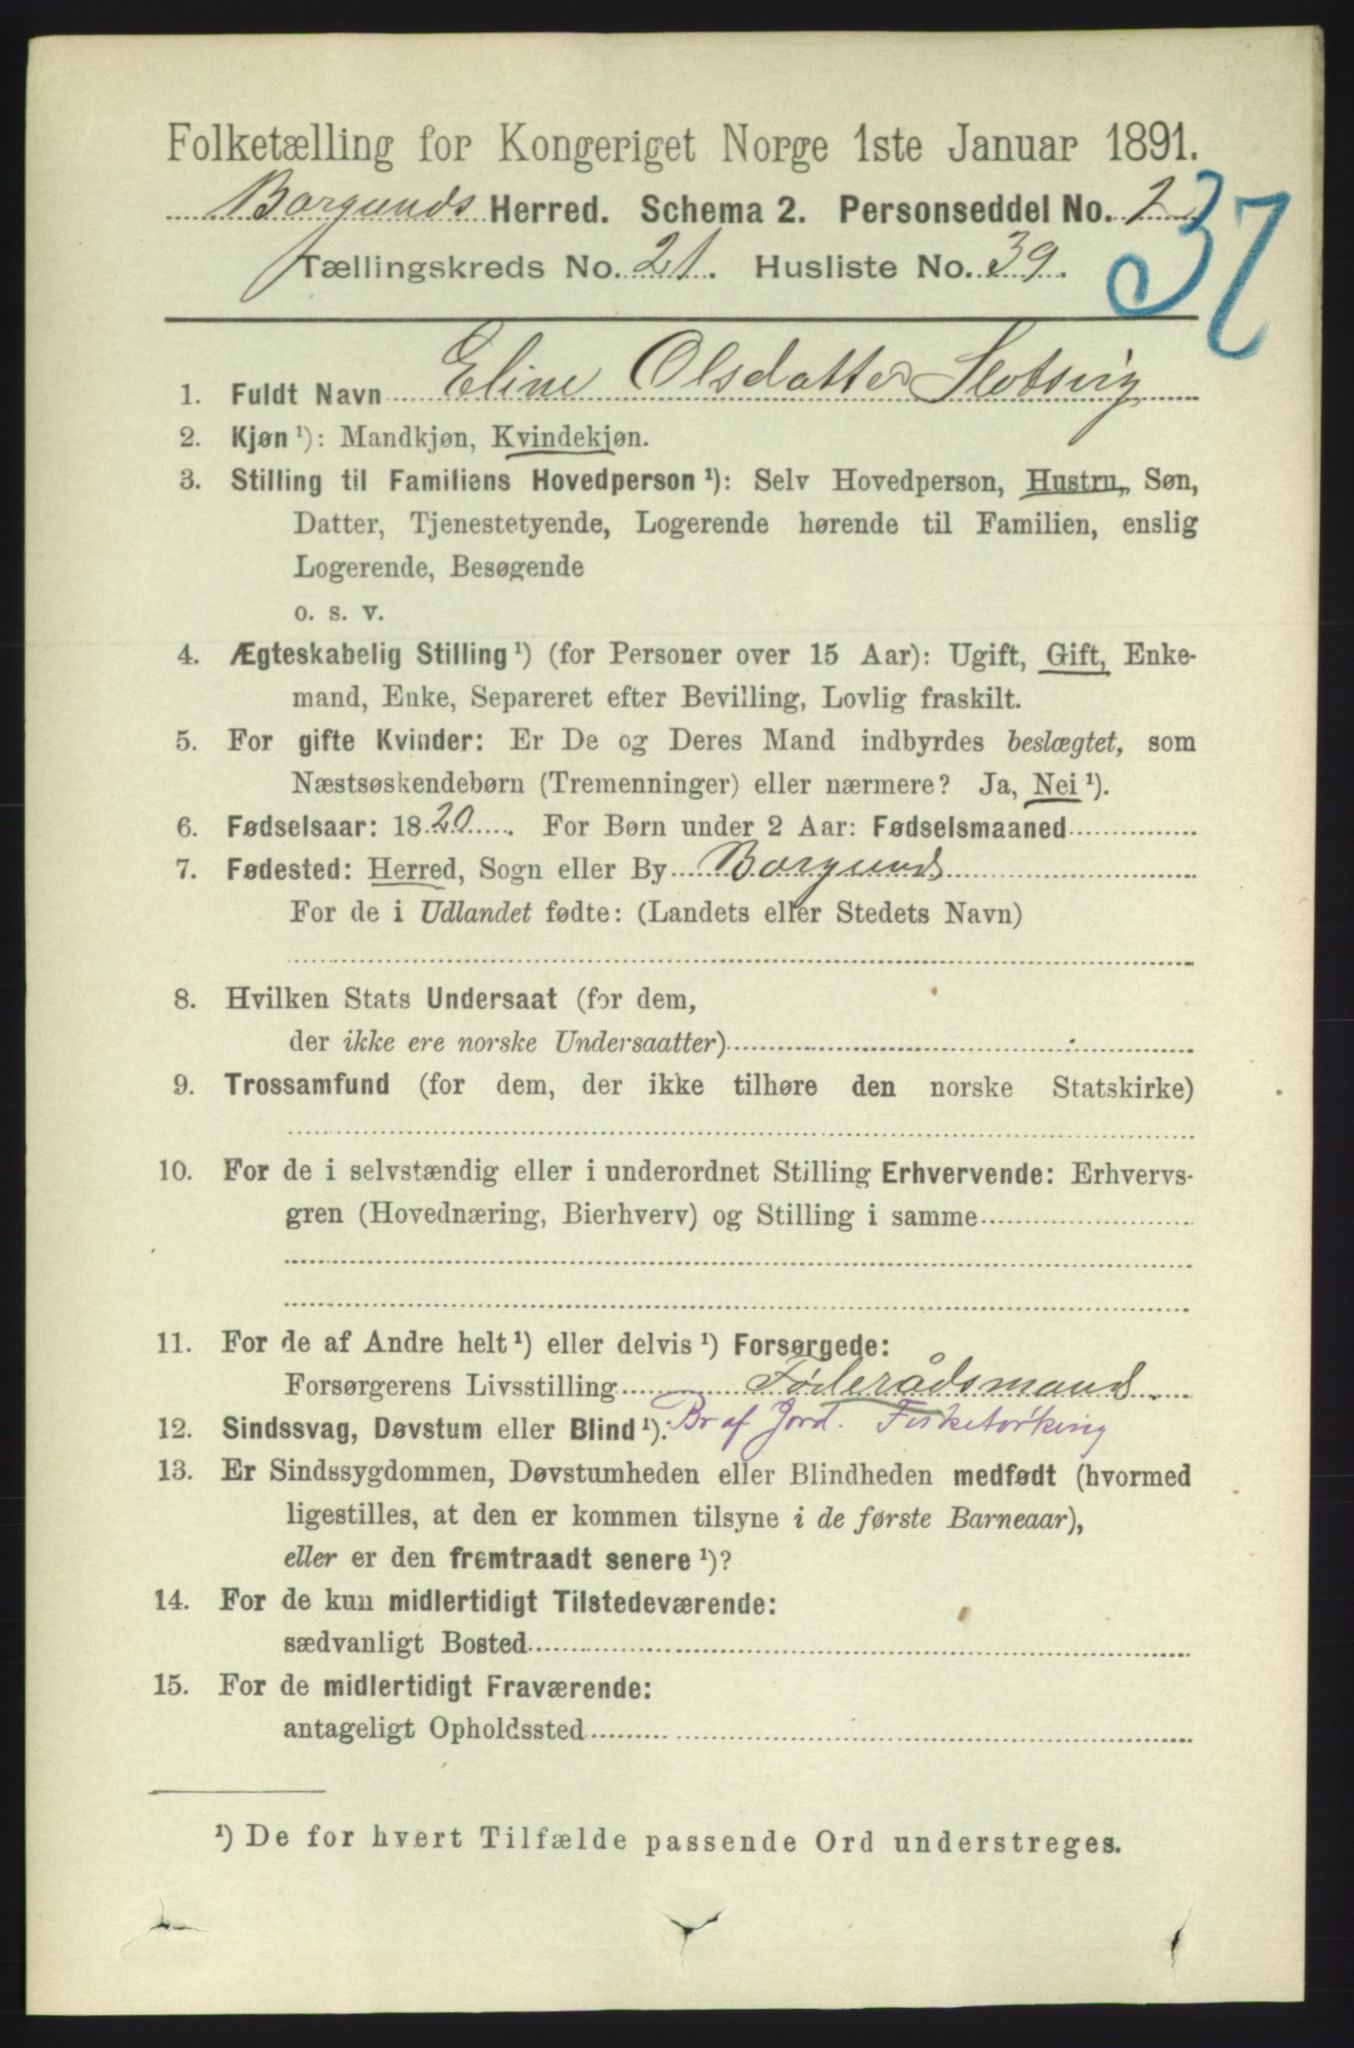 Folketælling for Kongeriget Norge 1ste Januar 1891.
Borgunds Herred. Schema 2. Personseddel No. 2
37
Tællingskreds No. 21. Husliste No. 39.
1. Fuldt Navn Eline Olsdatter Slotsvig
2. Kjøn ¹): Mandkjøn, Kvindekjøn.
3. Stilling til Familiens Hovedperson ¹): Selv Hovedperson, Hustru, Søn,
Datter, Tjenestetyende, Logerende hørende til Familien, enslig
Logerende, Besøgende
o. s. v.
4. Ægteskabelig Stilling ¹) (for Personer over 15 Aar): Ugift, Gift, Enke-
mand, Enke, Separeret efter Bevilling, Lovlig fraskilt.
5. For gifte Kvinder: Er De og Deres Mand indbyrdes beslægtet, som
Næstsøskendebørn (Tremenninger) eller nærmere? Ja, Nei ¹).
6. Fødselsaar: 1820. For Børn under 2 Aar: Fødselsmaaned
7. Fødested: Herred, Sogn eller By Borgunds
For de i Udlandet fødte: (Landets eller Stedets Navn)
8. Hvilken Stats Undersaat (for dem,
der ikke ere norske Undersaatter)
9. Trossamfund (for dem, der ikke tilhøre den norske Statskirke)
10. For de i selvstændig eller i underordnet Stilling Erhvervende: Erhvervs-
gren (Hovednæring, Bierhverv) og Stilling i samme
11. For de af Andre helt ¹) eller delvis ¹) Forsørgede:
Forsørgerens Livsstilling Føderådsmand.
12. Sindssvag, Døvstum eller Blind ¹). Br af Jord. Fisketørking
13. Er Sindssygdommen, Døvstumheden eller Blindheden medfødt (hvormed
ligestilles, at den er kommen tilsyne i de første Barneaar),
eller er den fremtraadt senere ¹)?
14. For de kun midlertidigt Tilstedeværende:
sædvanligt Bosted
15. For de midlertidigt Fraværende:
antageligt Opholdssted
¹) De for hvert Tilfælde passende Ord understreges.